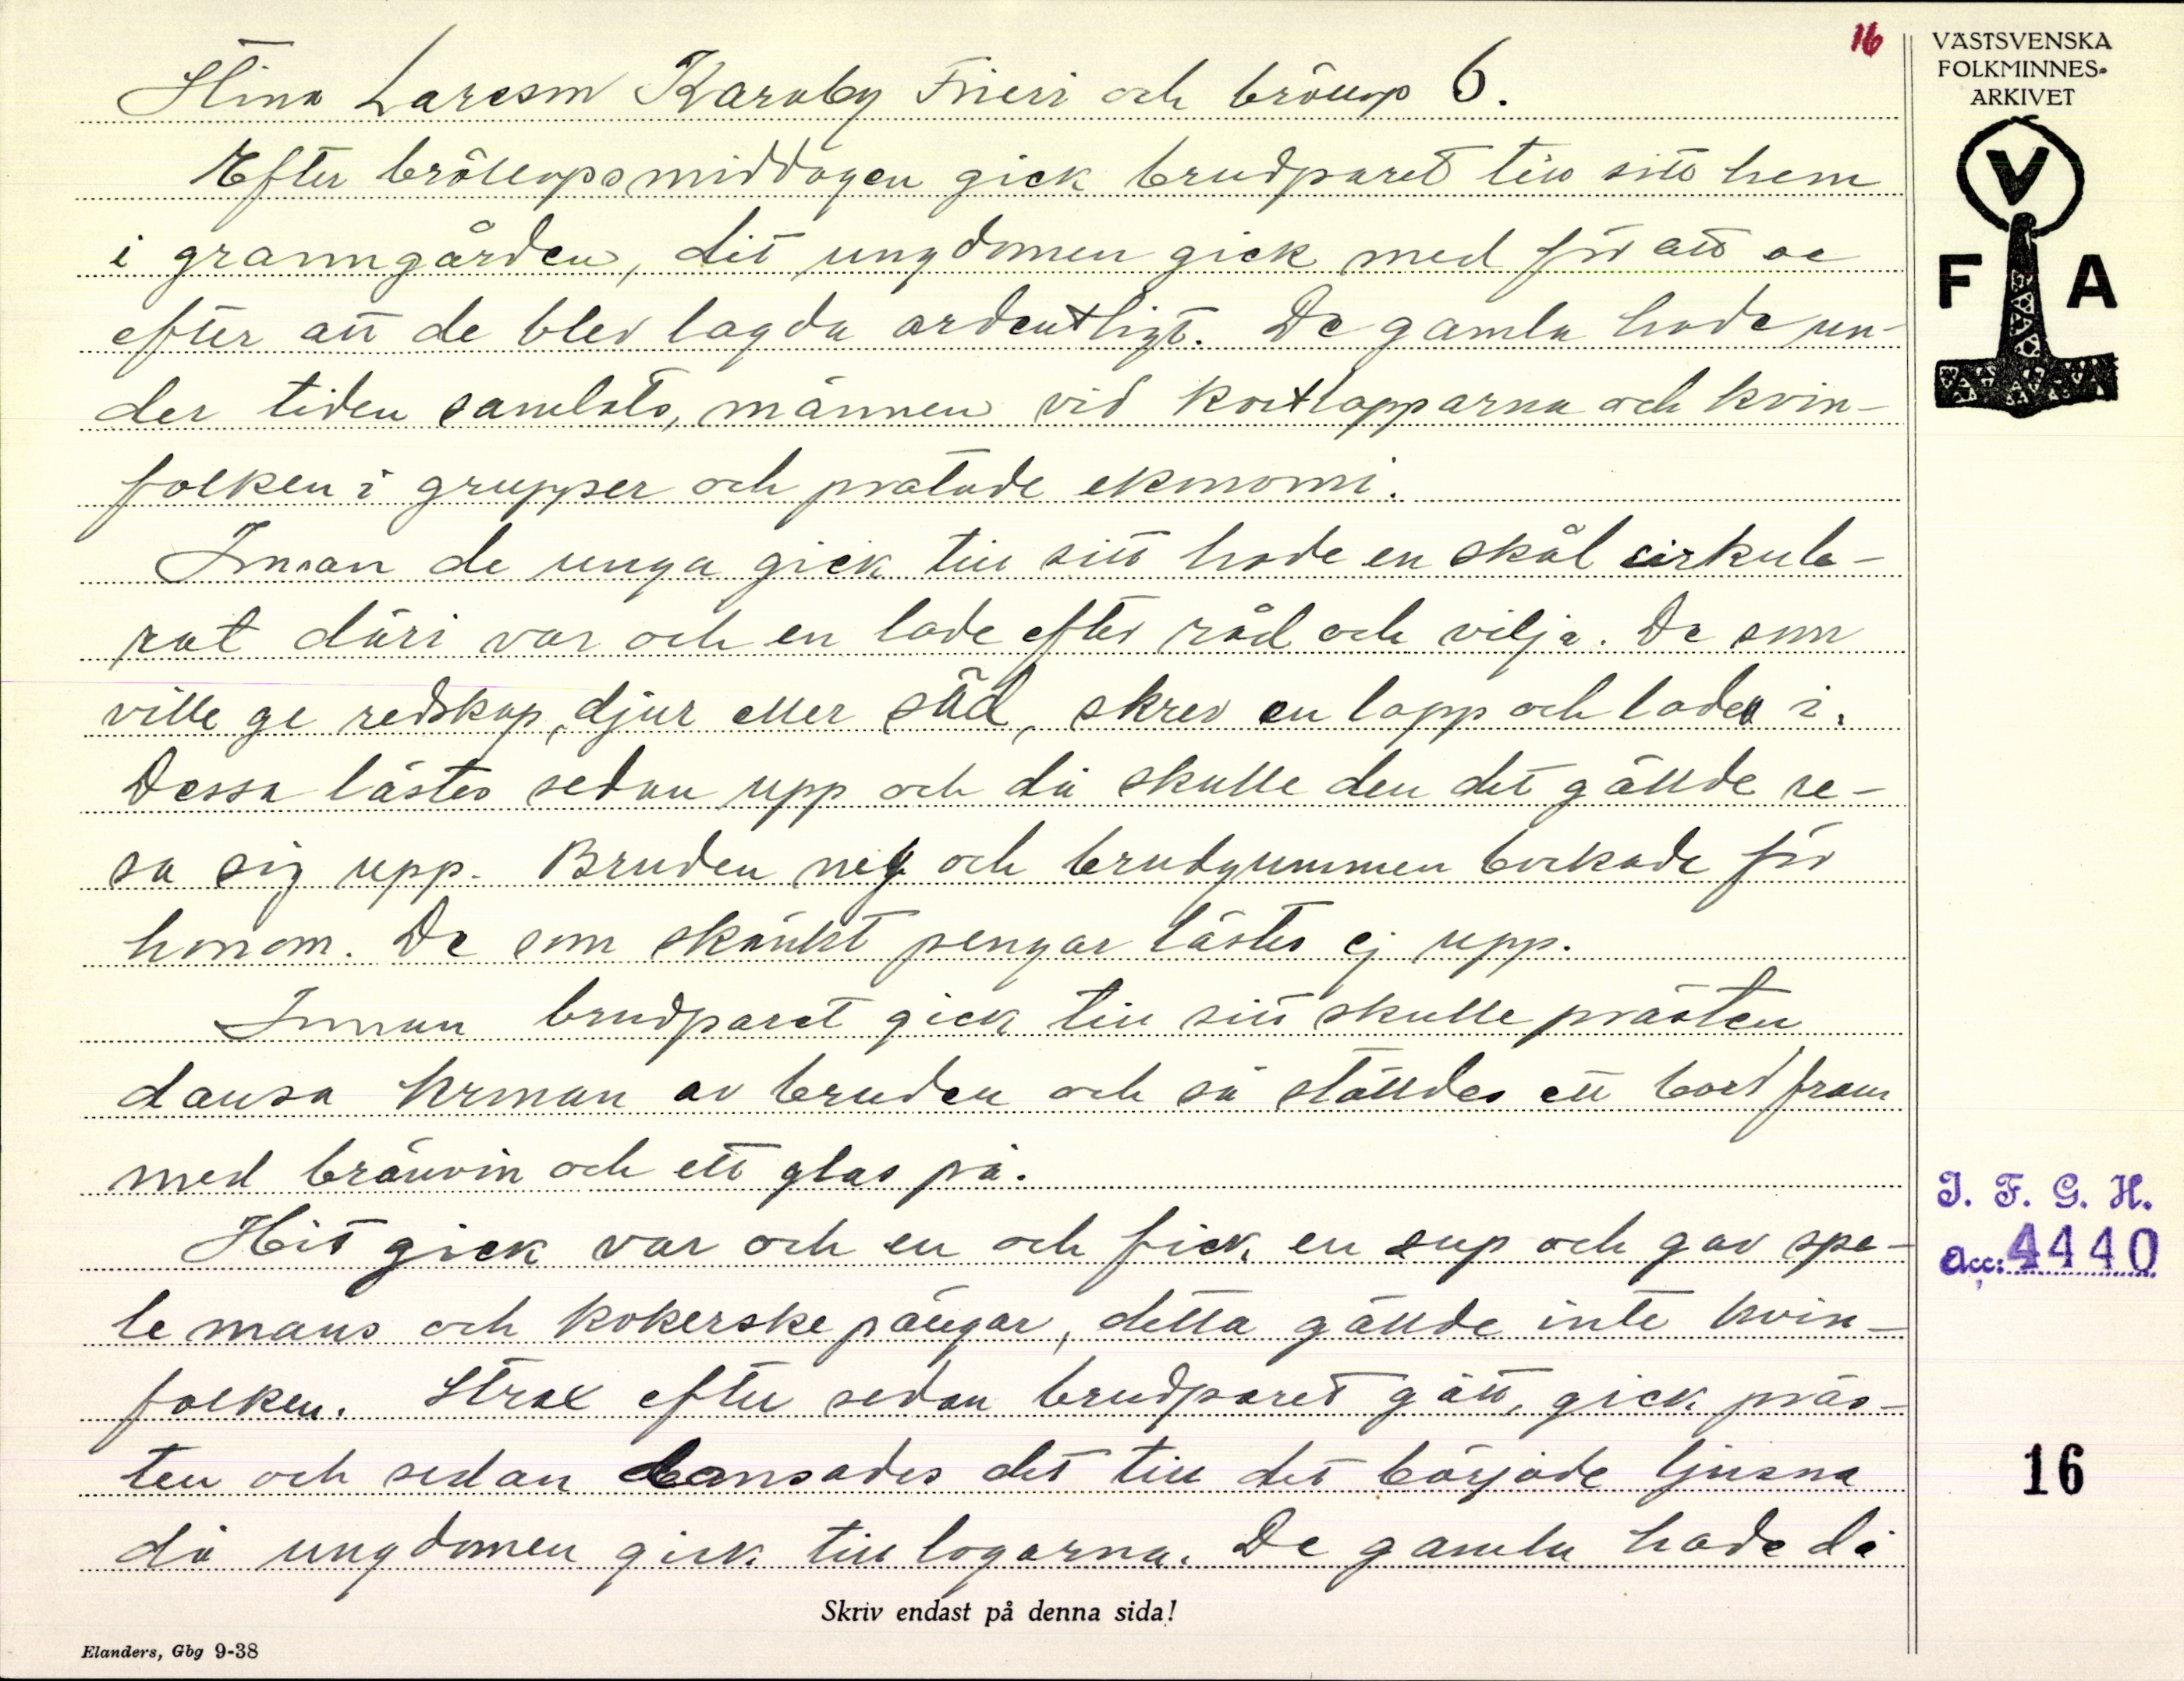 16
VÄSTSVENSKA
FOLKMINNES-
ARKIVET
V
F A
Stina Larsson Karaby Frieri och bröllop 6.
Efter bröllopsmiddagen gick brudparet till sitt hem
i granngården, dit ungdomen gick med för att se
efter att de blev lagda ordentligt. De gamla hade un-
der tiden samlats, männen vid kortlapparna och kvin-
folken i grupper och pratade ekonomi.
Innan de unga gick till sitt hade en skål cirkule-
rat däri var och en lade efter råd och vilja. De som
ville ge redskap, djur eller säd, skrev en lapp och lade i.
Dessa lästes sedan upp och då skulle den det gällde re-
sa sig upp. Bruden neg och brudgummen bockade för
honom. De som skänkt pengar lästes ej upp.
Innan brudparet gick till sitt skulle prästen
dansa kronan av bruden och så ställdes ett bord fram
med brännvin och ett glas på.
Hit gick var och en och fick en sup och gav spe-
lemans och kokerskepängar, detta gällde inte kvin-
folken. Strax efter sedan brudparet gått, gick präs-
ten och sedan dansades det till det började ljusna
då ungdomen gick till logarna. De gamla hade då
I. F. G. H.
Acc: 4440
16
Skriv endast på denna sida!
Elanders, Gbg 9-38